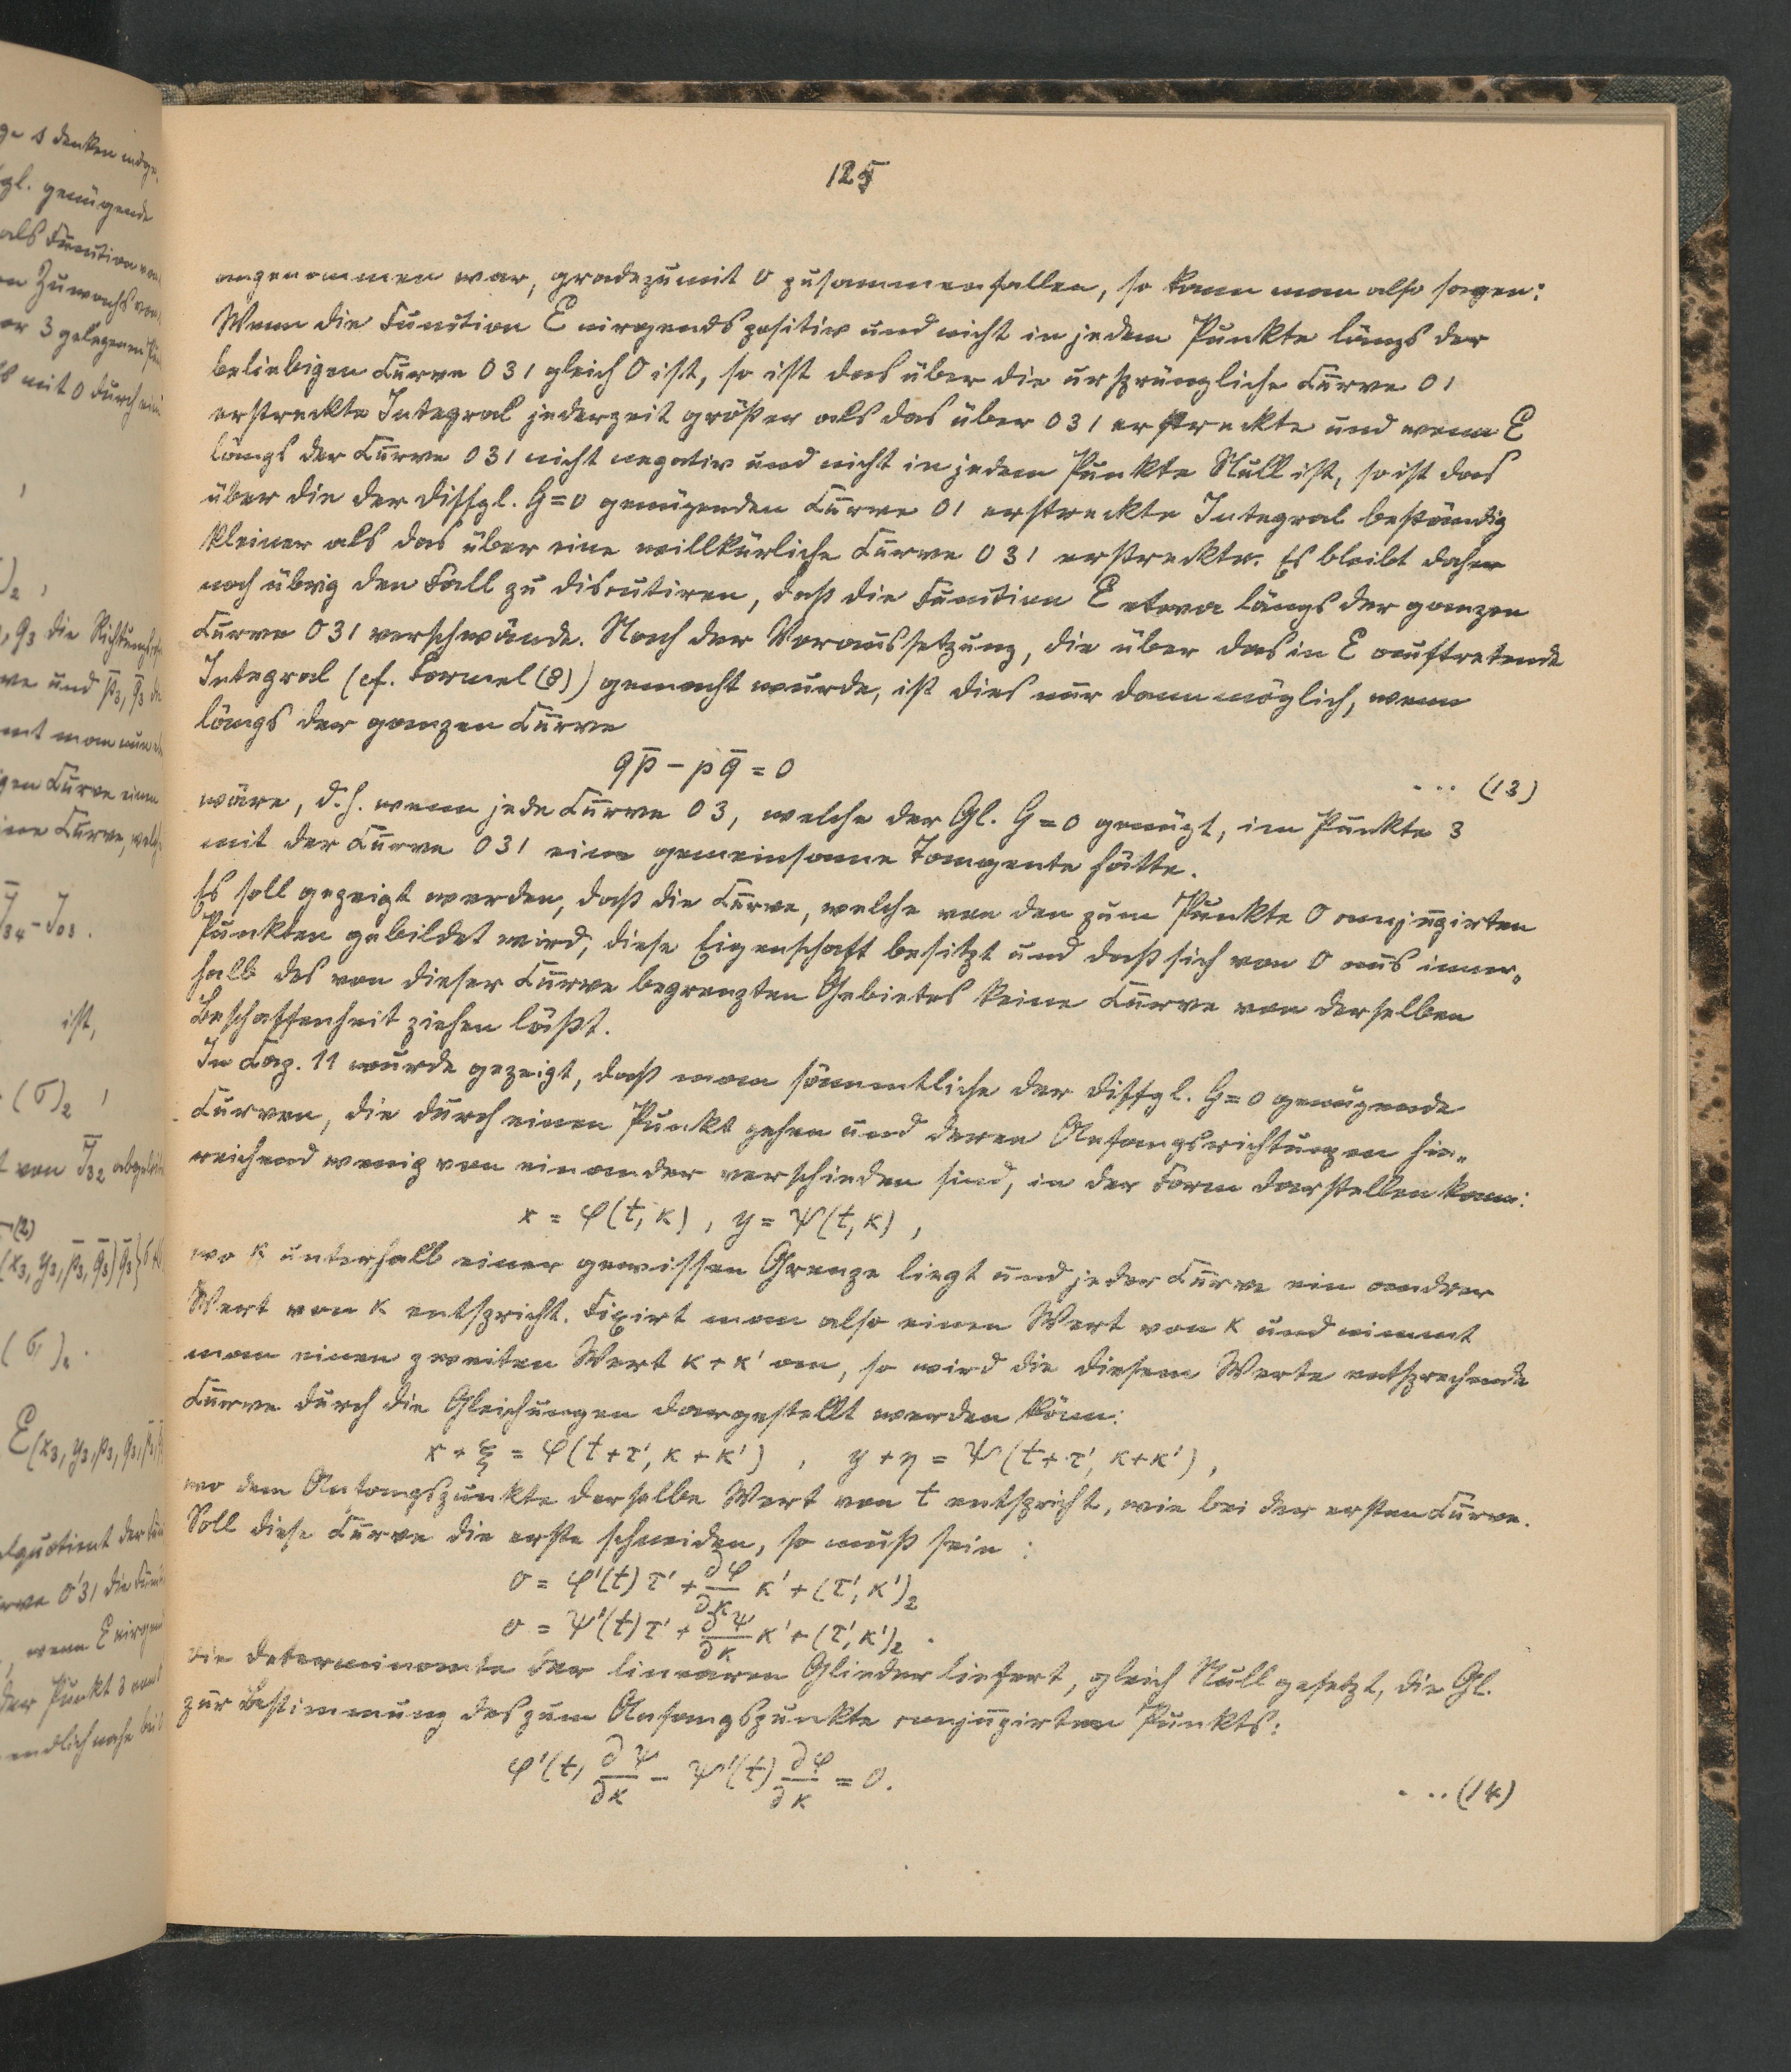 125
angenommen war, gradezu mit 0 zusammenfallen, so kann man also sagen:
Wenn die Function E nirgends positiv und nicht in jedem Punkte längs der
beliebigen Curve 031 gleich 0 ist, so ist das über die ursprüngliche Curve 01
erstreckte Integral jederzeit größer als das über 031 erstreckte und wenn E
längs der Curve 031 nicht negativ und nicht in jedem Punkte Null ist, so ist das
über die der Diffgl. G=0 genügenden Curve 01 erstreckte Integral beständig
kleiner als das über eine willkürliche Curve 031 erstreckte. Es bleibt daher
noch übrig den Fall zu discutiren, daß die Function E etwa längs der ganzen
Curve 031 verschwände. Nach der Voraussetzung, die über das in E auftretende
Integral (cf. Formel (8)) gemacht wurde, ist dies nur dann möglich, wenn
längs der ganzen Curve
qp̄ − pq̄ = 0 ... (13)
wäre, d.h. wenn jede Curve 03, welche der Gl. G=0 genügt, im Punkte 3
mit der Curve 031 eine gemeinsame Tangente hätte.
Es soll gezeigt werden, daß die Curve, welche von den zum Punkte 0 conjugirten
Punkten gebildet wird, diese Eigenschaft besitzt und daß sich von 0 aus inner-
halb des von dieser Curve begrenzten Gebietes keine Curve von derselben
Beschaffenheit ziehen läßt.
In Cap. 11 wurde gezeigt, daß man sämmtliche der Diffgl. G=0 genügende
Curven, die durch einen Punkt gehen und deren Anfangsrichtungen hin-
reichend wenig von einander verschieden sind, in der Form darstellen kann:
x = φ(t, κ) , y = ψ(t, κ) ,
wo κ unterhalb einer gewissen Grenze liegt und jeder Curve ein andrer
Wert von κ entspricht. Fixirt man also einen Wert von κ und nimmt
man einen zweiten Wert κ+κ' an, so wird die diesem Werte entsprechende
Curve durch die Gleichungen dargestellt werden könn:
x + ξ = φ(t+τ', κ+κ') , y + η = ψ(t+τ', κ+κ') ,
wo dem Anfangspunkte derselbe Wert von t entspricht, wie bei der ersten Curve.
Soll diese Curve die erste schneiden, so muß sein :
0 = φ'(t) τ' + ∂φ/∂κ κ' + (τ', κ')₂
0 = ψ'(t) τ' + ∂ψ/∂κ κ' + (τ', κ')₂ .
Die Determinante der linearen Glieder liefert, gleich Null gesetzt, die Gl.
zur Bestimmung des zum Anfangspunkte conjugirten Punkts:
φ'(t) ∂ψ/∂κ − ψ'(t) ∂φ/∂κ = 0. ... (14)